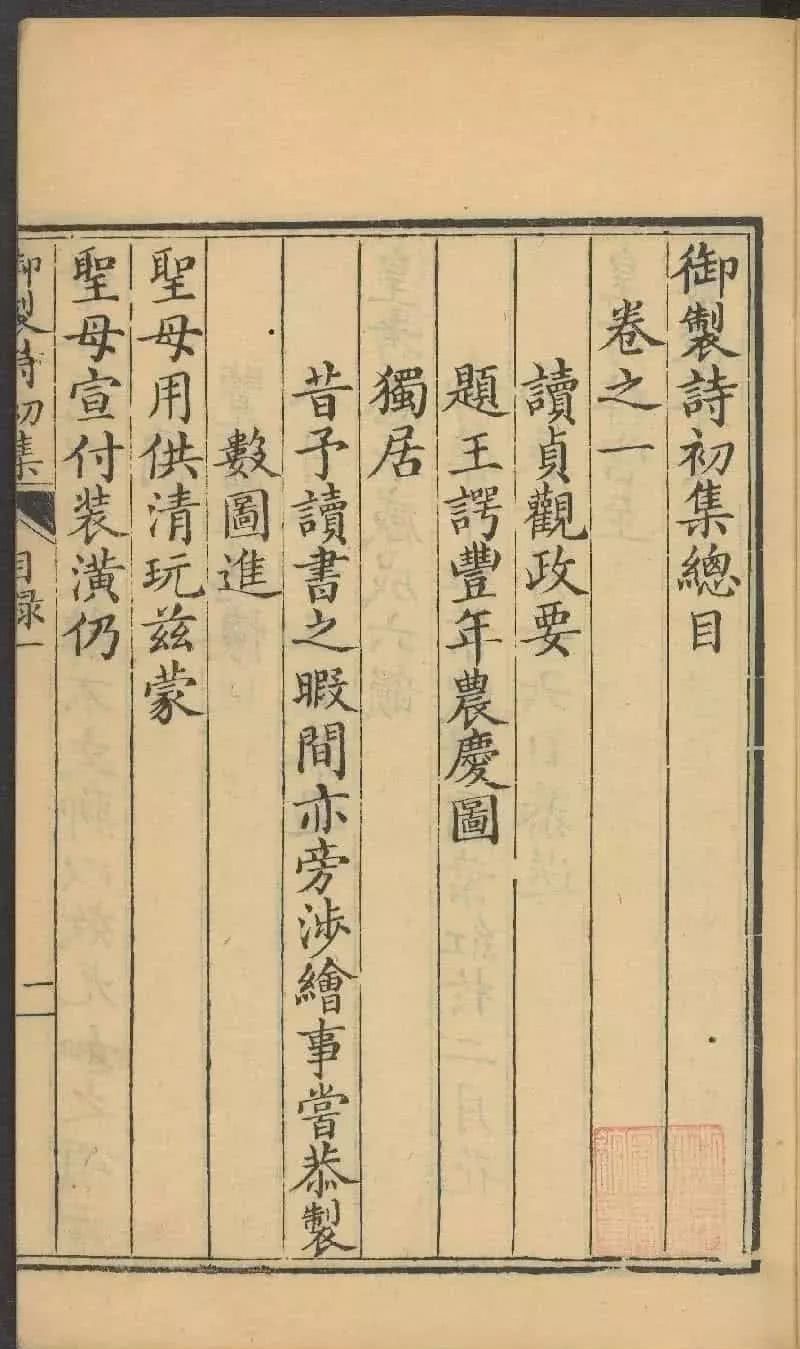 御製詩初集總目
卷之一
讀貞觀政要
題王諤豐年農慶圖
獨居
昔予讀書之暇間亦旁涉繪事嘗恭製
數圖進
聖母用供清玩茲蒙
聖母宣付装潢仍
御製詩初集
目録一
二